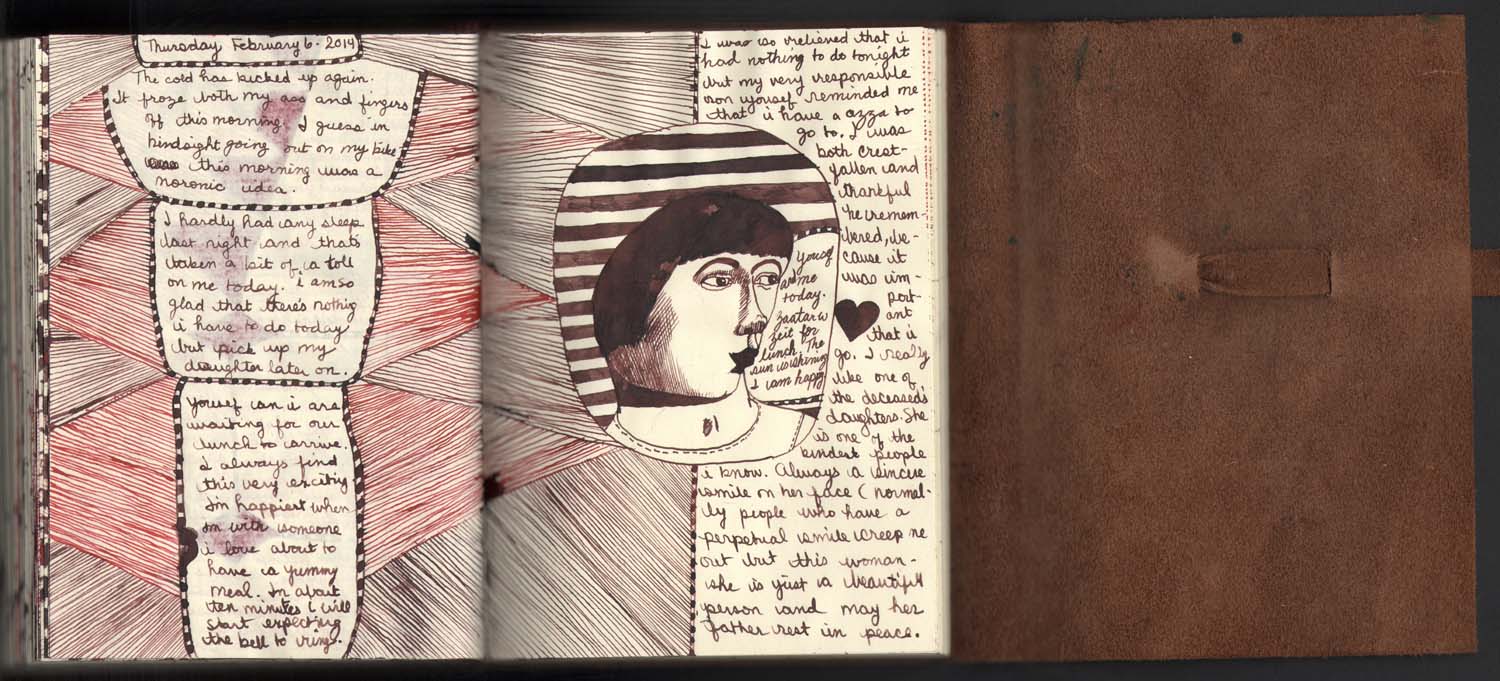 Thursday February 6. 2014
The cold has kicked up again.
It froze both my ass and fingers
off this morning. I guess in
hindsight going out on my bike
this morning was a
moronic idea.
I hardly had any sleep
last night and thats
taken a bit of a toll
on me today. i am so
glad that there's nothing
i have to do today
but pick up my
daughter later on.
Yousef an i are
waiting for our
lunch to arrive.
I always find
this very exciting.
Im happiest when
Im with someone
i love about to
have a yummy
meal. In about
ten minutes i will
start expecting
the bell to ring.
I was so relieved that i
had nothing to do tonight
but my very responsible
son yousef reminded me
that i have a azza to
go to. I was
both crest-
fallen and
thankful
he remem-
bered, be-
cause it
was im
port-
ant
that i
go. I really
like one of
the deceased's
daughters. She
is one of the
kindest people
i know. Always a sincere
smile on her face (normal-
ly people who have a
perpetual smile creep me
out but this woman-
she is just a beautiful
person and may her
father rest in peace.
Yousef
and me
today.
zaatar w
zeit for
lunch. The
sun is shining
I am happy